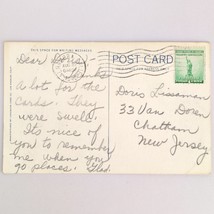 THIS SPACE FOR WRITING MESSAGES
POST CARD
Dear Doris:- Thanks
a lot for the
cards. They
were swell.
Its nice of
you to remember
me when you
go places.
Doris Lissaman
33 Van Doren
Chatham
New Jersey